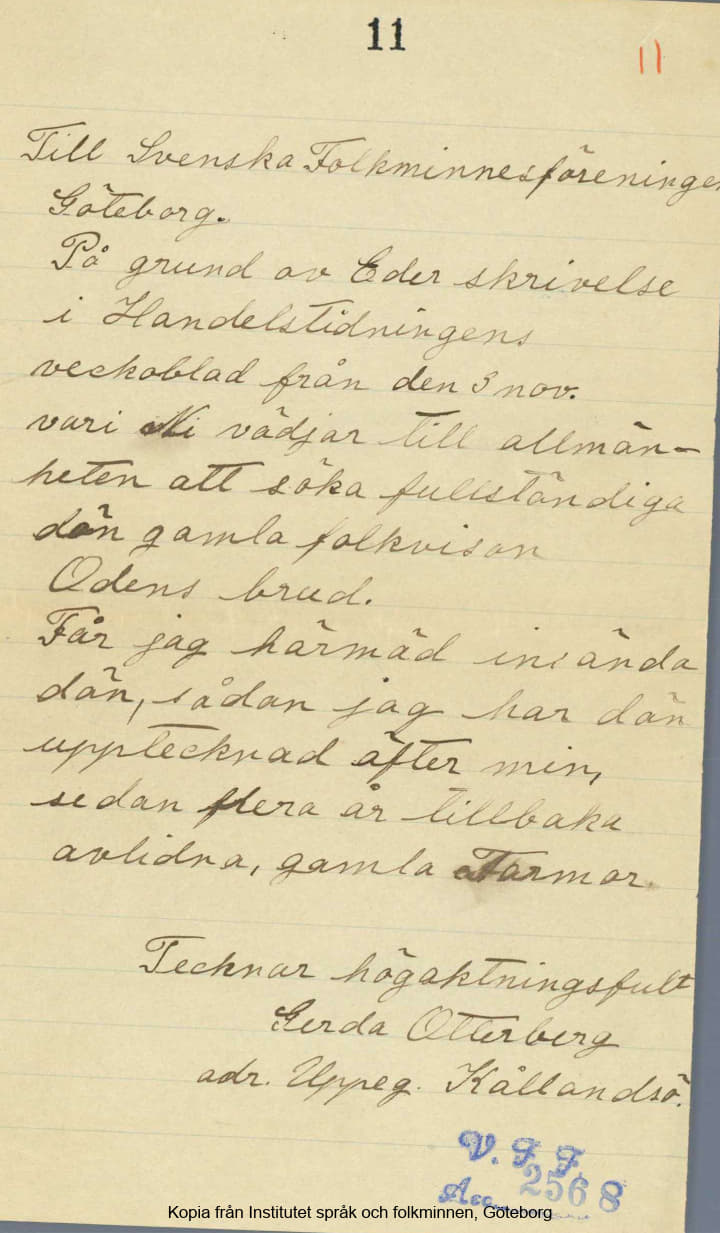 11
11
Till Svenska Folkminnesföreningen
Göteborg.
På grund av Eder skrivelse
i Handelstidningens
veckoblad från den 3 nov.
vari Ni vädjar till allmän-
heten att söka fullständiga
dän gamla folkvisan
Odens brud.
Får jag härmäd insända
dän, sådan jag har dän
upptecknad äfter min,
sedan flera år tillbaka
avlidna, gamla Farmor.
Tecknar högaktningsfult
Gerda Otterberg
adr. Uppeg. Kållandsö.
V. F. F.
Acc. 2568
Kopia från Institutet språk och folkminnen, Göteborg